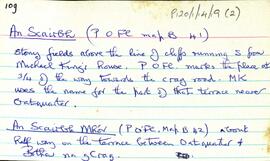 109
P120/1/4/9 (2)
An Scairbh (P O Fc map B 41)
Stony fields above the line of cliffs running S from
Michael King's House. P O Fc marks the place at
3/4 of the way towards the crag road. MK
uses the name for the part of that terrace nearer
Oatquarter.
An Scairbh Mhór (P O Fc, Map B 42) about
half way on the terrace between Oatquarter &
Bóthar na gCrag.